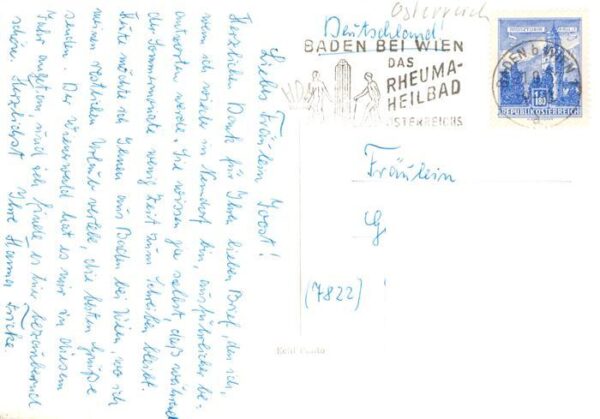 Liebes Fräulein Joost!
Herzlichen Dank für Ihren lieben Brief, den ich,
wenn ich wieder in Nendorf bin, ausführlicher be-
antworten werde. Sie wissen ja selbst daß während
der Sommermonate wenig Zeit zum Schreiben bleibt.
Heute möchte ich Ihnen aus Baden bei Wien, wo ich
meinen restlichen Urlaub verlebe, die besten Grüße
senden. Der Wienerwald hat es mir in diesem
Jahr angetan, und ich finde es hier bezaubernd
schön. Herzlichst Ihre Hanna
Österreich
Deutschland
BADEN BEI WIEN
DAS
RHEUMA-
HEILBAD
ÖSTERREICHS
BADEN b. WIEN
S 1.80
REPUBLIK ÖSTERREICH
Fräulein
G
(7822)
Echt Photo